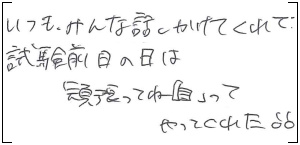 いつも、みんな話しかけてくれて:
試験前日の日は
「頑張ってね」って
やってくれた